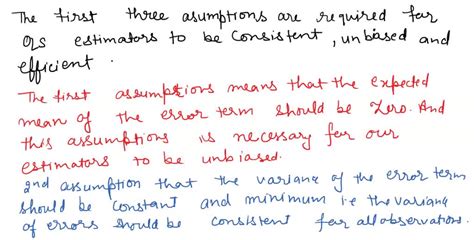 The first three asumptions are required for
OLS estimators to be Consistent, unbiased and
efficient.
The first assumptions means that the expected
mean of the error term should be Zero. And
this assumptions is necessary for our
estimators to be unbiased.
2nd assumption that the variance of the error term
should be constant and minimum i.e the variance
of errors should be consistent for all observations.